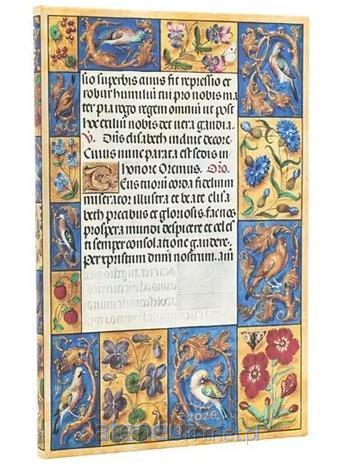 sio superbis cuius fit repressio et
robur humiliū cui pio nobis ma
ter pia rogo regem omniū ut post
hoc exiliū nobis det vera gaudia.
V. Dn̄s elisabeth induit decore.
Cuius nunc parata est sedis in
Honore Oremus. Oro.
Eus tuorū corda fidelium
miserator illustra et beate elisa
beth precibus et gloriosis fac nos
prospera mundi despicere et celes
ti semper consolatione gaudere.
per xp̄istum dn̄m nostrum. am̄
2026